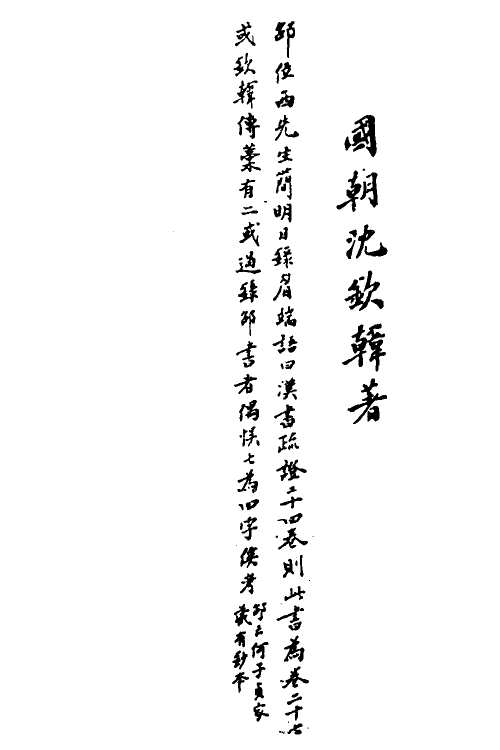 國朝沈欽韓著
邵位西先生簡明目錄眉端語曰漢書疏證二十四卷則此書為卷二十七
或欽韓傳藁有二或過錄邵書者偶悞七為四字俟考
邵云何子貞家
藏有鈔本